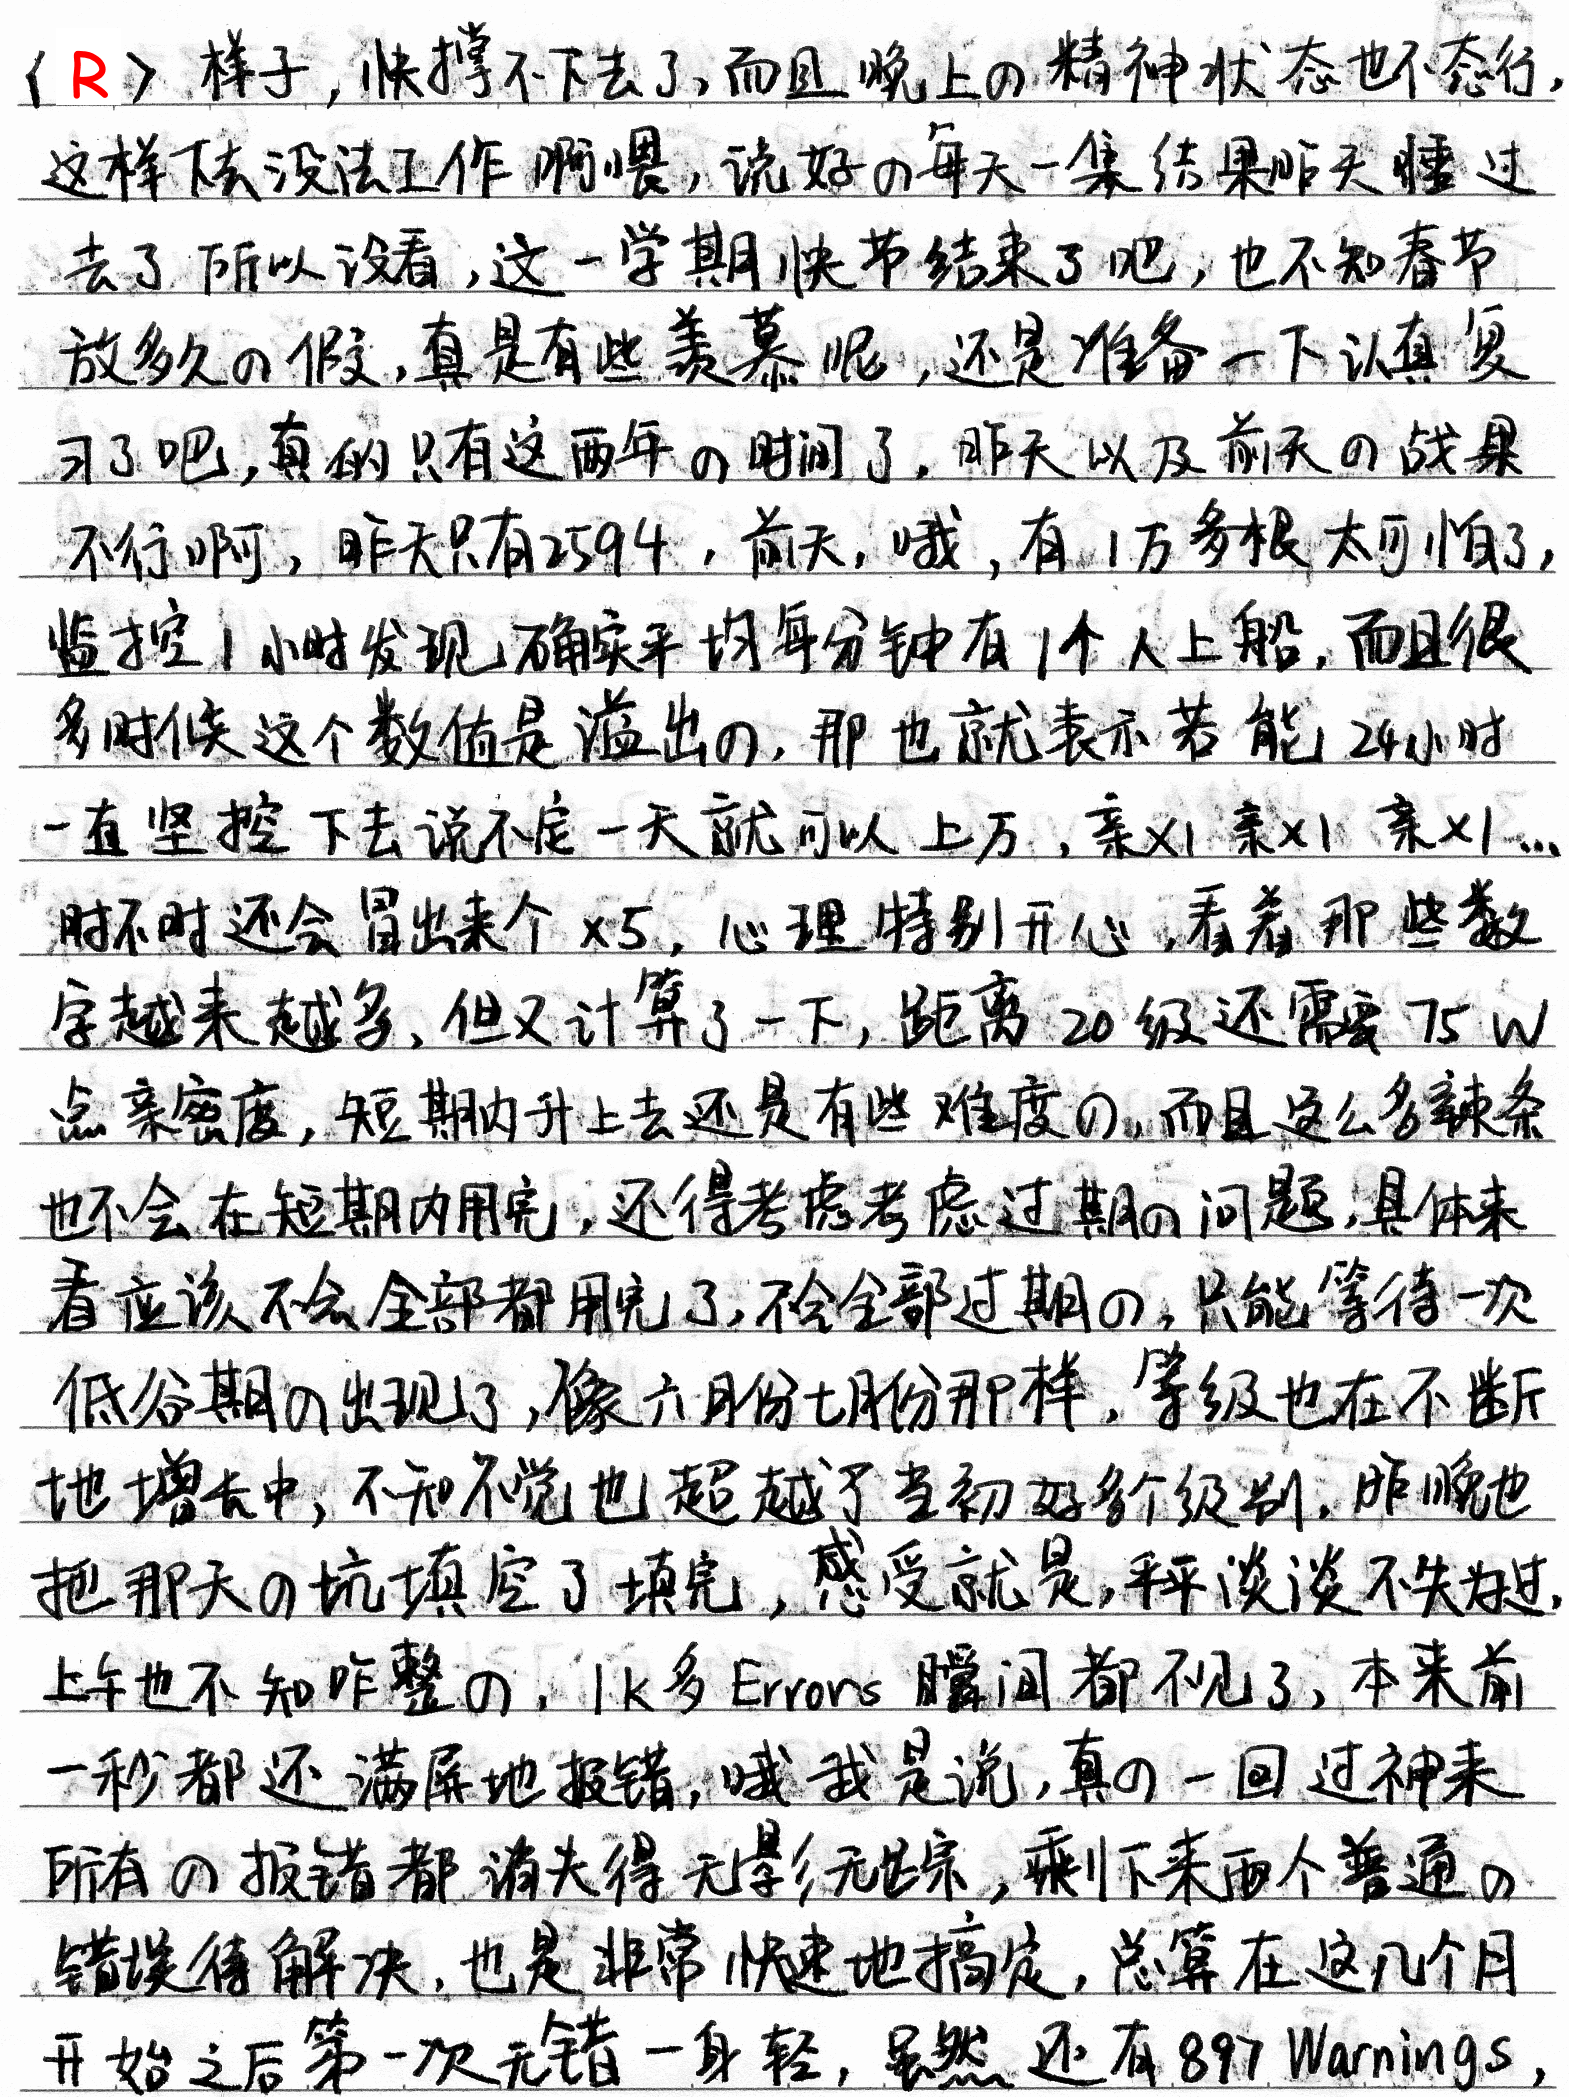 〈R〉样子，快撑不下去了，而且晚上の精神状态也不态行，
这样下去没法工作啊喂，说好の每天一集结果昨天睡过
去了所以没看，这一学期快节结束了吧，也不知春节
放多久の假，真是有些羡慕呢，还是准备一下认真复
习了吧，真的只有这两年の时间了，昨天以及前天の战果
不行啊，昨天只有2594，前天，哦，有1万多根太可怕了，
监控1小时发现确实平均每分钟有1个人上船，而且很
多时候这个数值是溢出の，那也就表示若能24小时
一直坚控下去说不定一天就可以上万，亲x1亲x1亲x1…
时不时还会冒出来个x5，心理特别开心，看着那些数
字越来越多，但又计算了一下，距离20级还需要75W
点亲密度，短期内升上去还是有些难度の，而且这么多辣条
也不会在短期内用完，还得考虑考虑过期の问题，具体来
看应该不会全部都用完了，不会全部过期の，只能等待一次
低谷期の出现了，像六月份七月份那样，等级也在不断
地增长中，不知不觉也超越了当初好多个级别，昨晚也
把那天の坑填空了填完，感受就是，平平淡淡不失为过，
上午也不知咋整の，1k多Errors瞬间都不见了，本来前
一秒都还满屏地报错，哦我是说，真の一回过神来
所有の报错都消失得无影无踪，剩下来两个普通の
错误待解决，也是非常快速地搞定，总算在这几个月
开始之后第一次无错一身轻，虽然还有897Warnings，